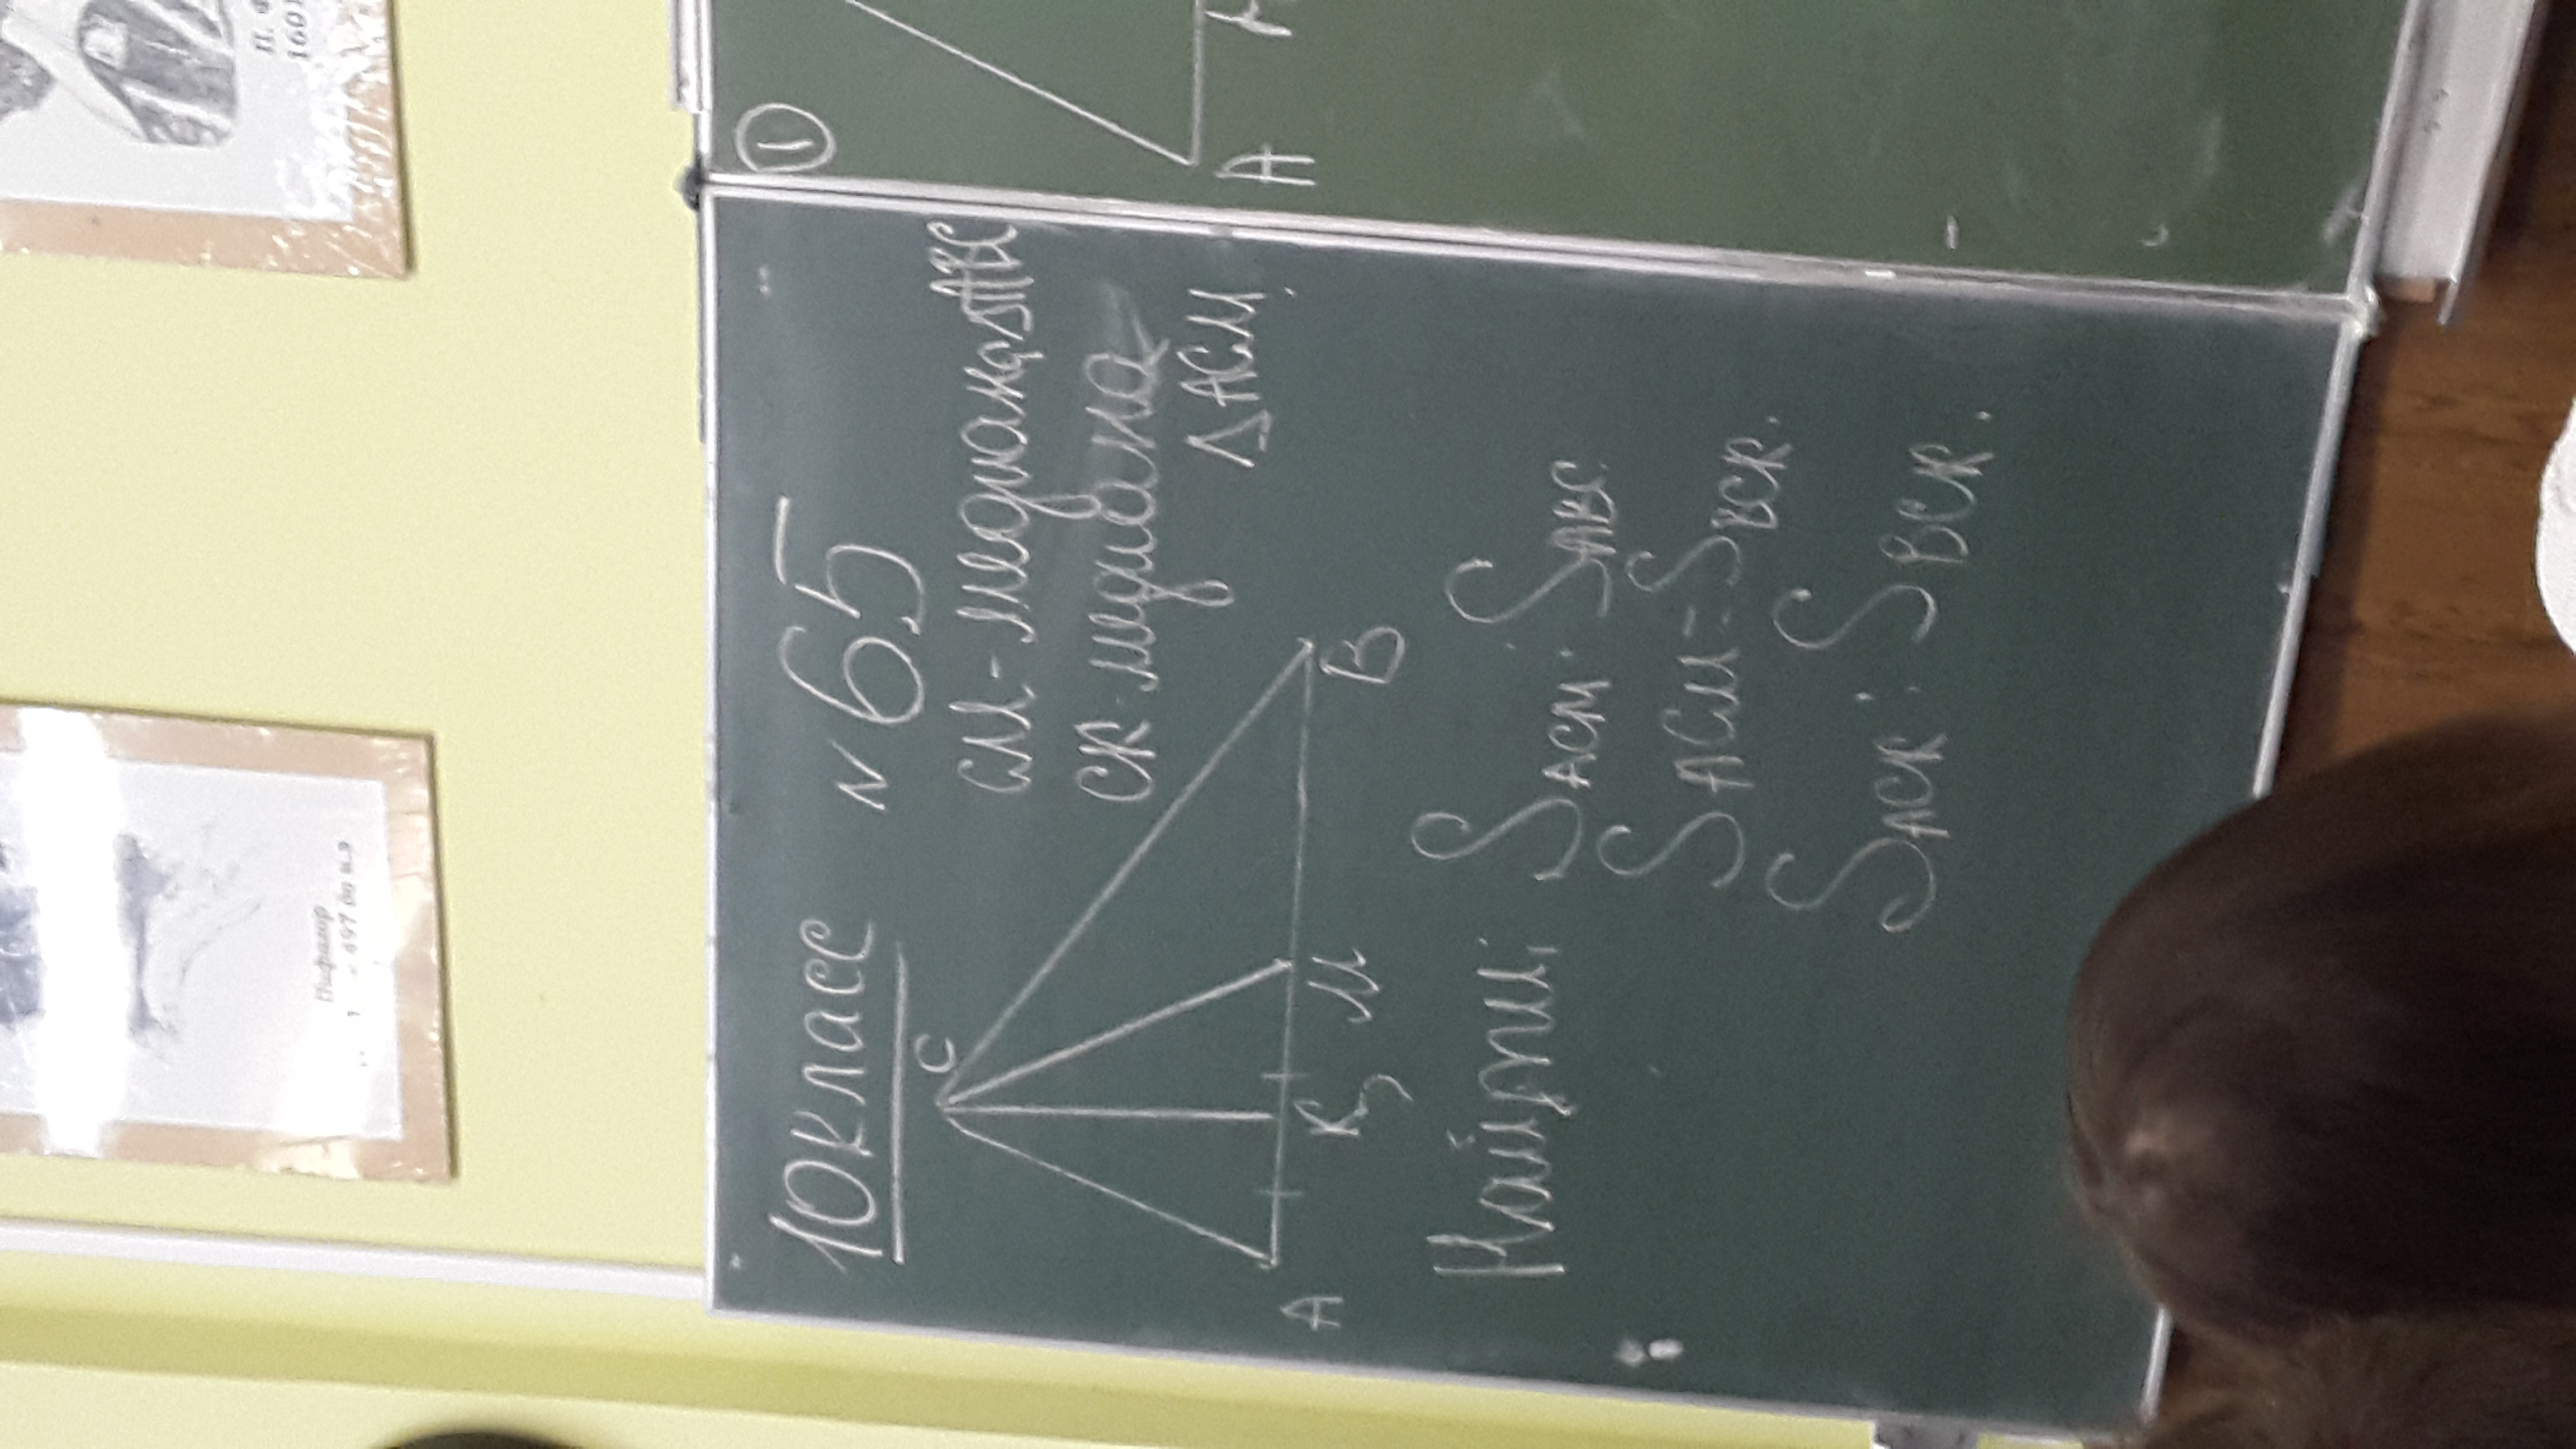 Пифагор
497 до н.э
П. Ф
1601
10 класс №65
C
CM - медиана △ABC
CK - медиана
△ACM
A K M B
Найти: S ACM : S ABC
S ACM = S BCK.
S ACK : S BCK.
1
A